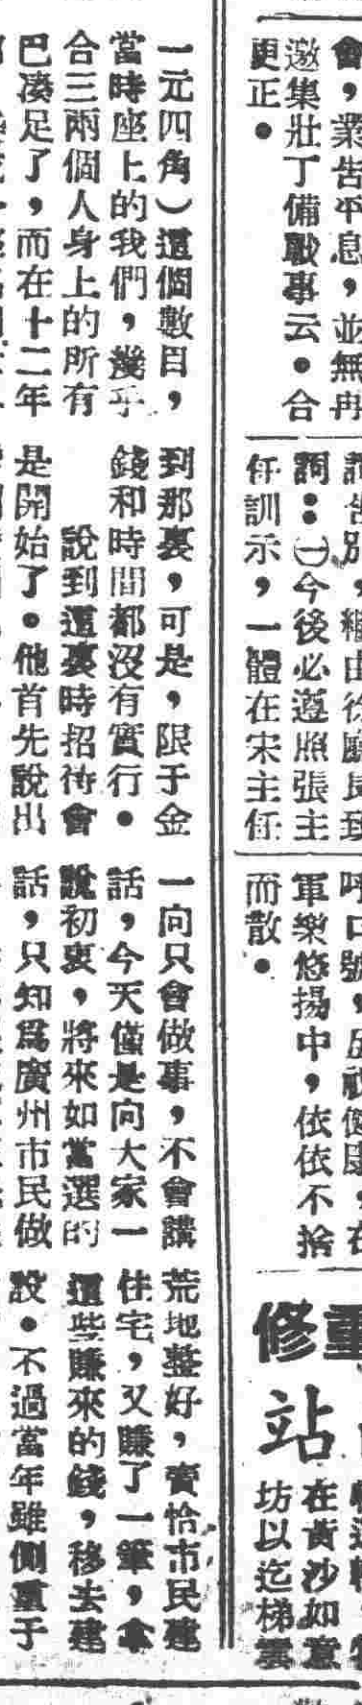 會，業告平息，並無再
邀集壯丁備戰事云。合
更正。
詞：㊀今後必遵照張主
任訓示，一體在宋主任
軍樂悠揚中，依依不捨
而散。
重
修
站
在黃沙如意
坊以迄梯雲
一元四角）這個數目，
當時座上的我們，幾乎
合三兩個人身上的所有
巴湊足了，而在十二年
到那裏，可是，限于金
錢和時間都沒有實行。
說到這裏時招待會
是開始了。他首先說出
一向只會做事，不會講
話，今天僅是向大家一
說初衷，將來如當選的
話，只知爲廣州市民做
荒地整好，賣恰市民建
住宅，又賺了一筆，拿
這些賺來的錢，移去建
設。不過當年雖側重于